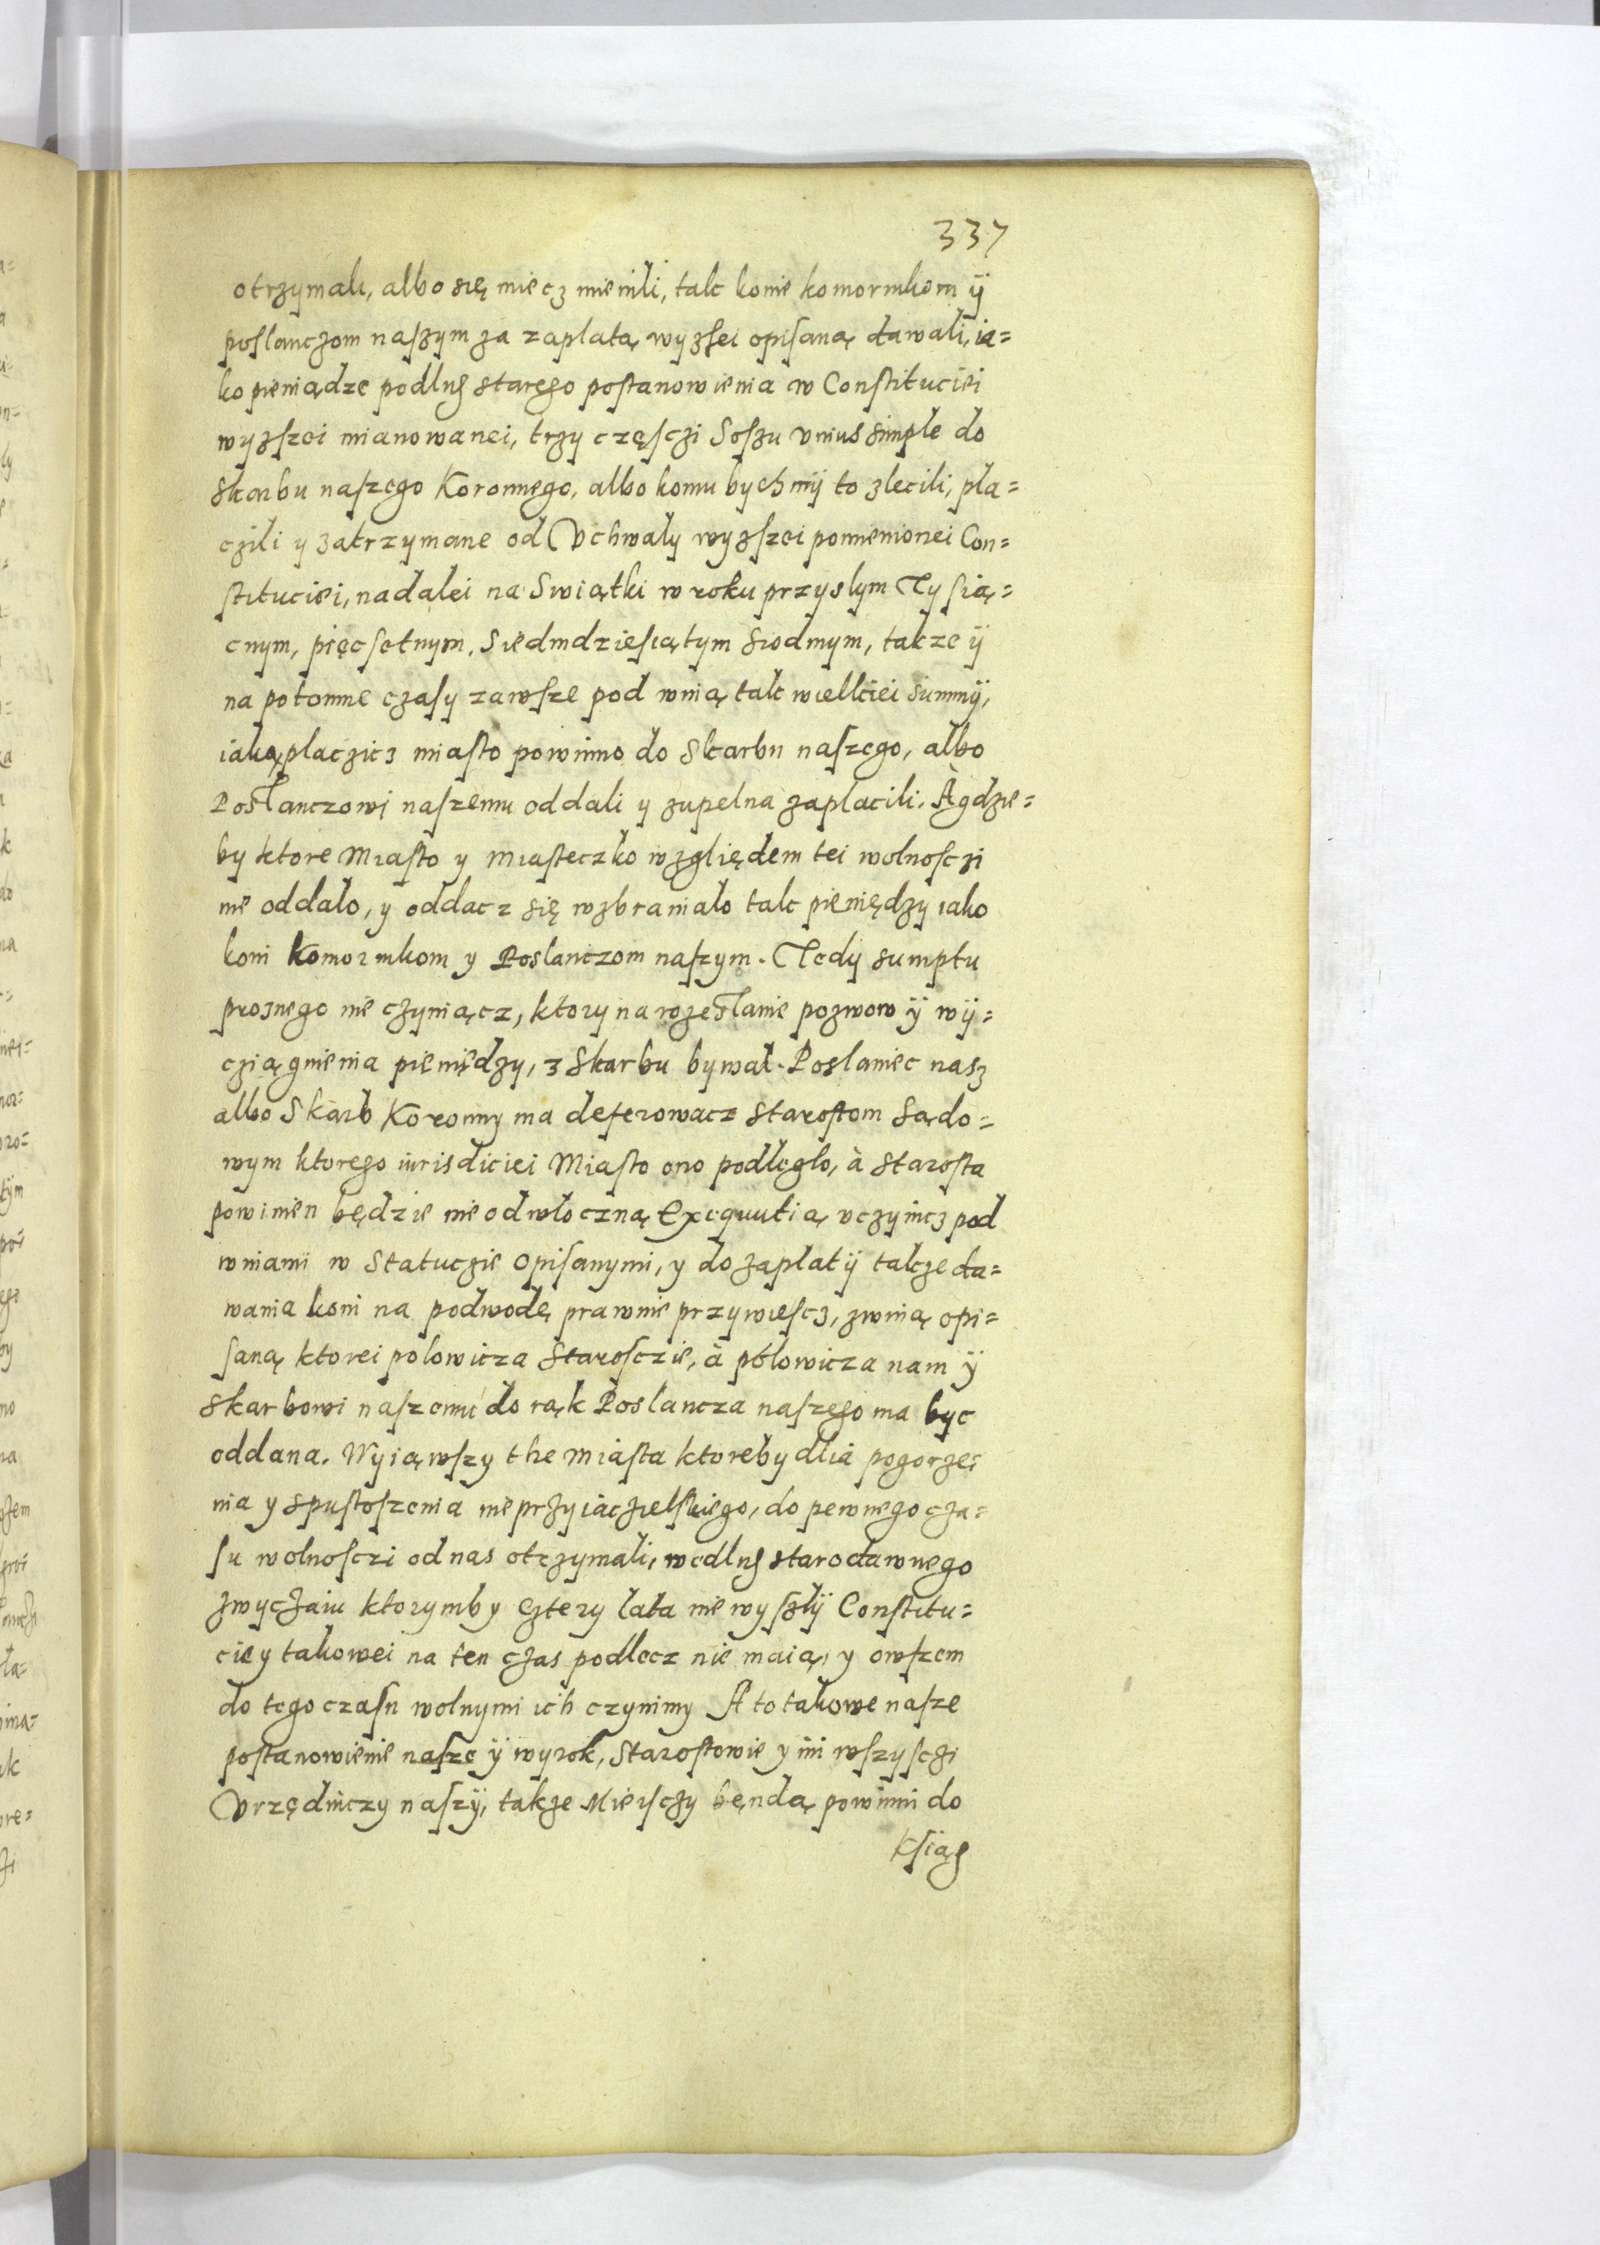 337
otrzymali, albo się miecz mienili, tak konie komornikom ÿ
poslanczom naszym za zaplatą wyzſei opiſaną dawali, ia=
ko pieniądze podlug starego postanowienia w Constituciei
wyzſzei mianowanei, trzy częſczi Soſzu vnius simple do
Skarbu naſzego Koronnego, albo komu bychmÿ to zlecili, pla=
czili y zatrzymane od Vchwaly wyzſzei pomienionei Con=
stituciei, nadalei na Swiątki w roku przyslym Tyſią=
cnym, pięcſetnym, Siedmdzieſiątym Siodmym, takze ÿ
na potomne czaſy zawſze pod winią tak wielkiei summÿ,
iaką placzicz miasto powinno do Skarbu naſzego, albo
Posłanczowi naſzemu oddali y zupelna zaplacili. À gdzie=
by ktore Miasto y miasteczko wzglięḍem tei wolnoſczi
nie oddało, y oddacz się wzbraniało tak pieniędzy iako
koni komornikom y Poslanczom naſzym. Tedÿ sumptu
proznego nie czyniącz, ktory na rozesłanie pozwow ÿ wÿ=
cziągnienia pieniędzy, z Skarbu bywał. Poslaniec nasz
albo Skarb Koronny ma deferowacz Starostom Sądo=
wym ktorego iurisdiciei Miasto ono podległo, à Starosta
powinien będzie nieodwłoczną Exequutią vczyincz pod
winiami w Statuczie opiſanymi, y do zapłatÿ takze da=
wania koni na podwodę prawnie przywieſcz, zwinią opi=
ſaną ktorei polowicza Staroſczie, à pólowicza nam ÿ
Skarbowi naſzemu do rąk Poslancza naſzego ma byc
oddana. Wyiąwſzy the miasta ktoreby dlia pogorze=
nia y Spustoſzenia nieprzyiaczielſkiego, do pewnego cza=
ſu wolnoſczi od nas otrzymali, wedlug starodawnego
zwyczaiu ktorymby cztery lata nie wyſzłÿ Constitu=
ciey takowei na ten czas podlecz nie maią, y owſzem
do tego czaſu wolnymi ich czynimy A to takowe naſze
postanowienie naſze ÿ wyrok, Starostowie y ini wſzyſczi
Vrzędniczy naſzÿ, takze Mieiſczy bęndą powinni do
kſiąg